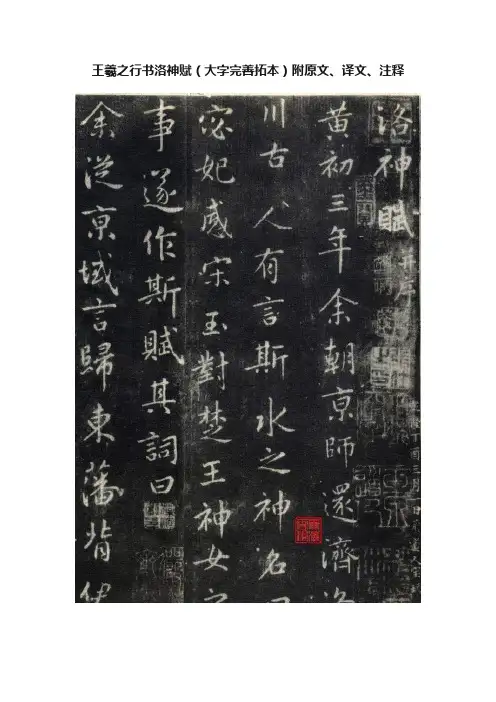 王羲之行书洛神赋（大字完善拓本）附原文、译文、注释
洛神賦并序
黄初三年余朝亰師還濟洛
川古人有言斯水之神名曰
宓妃感宋玉對楚王神女之
事遂作斯賦其詞曰
余從亰域言歸東藩背伊